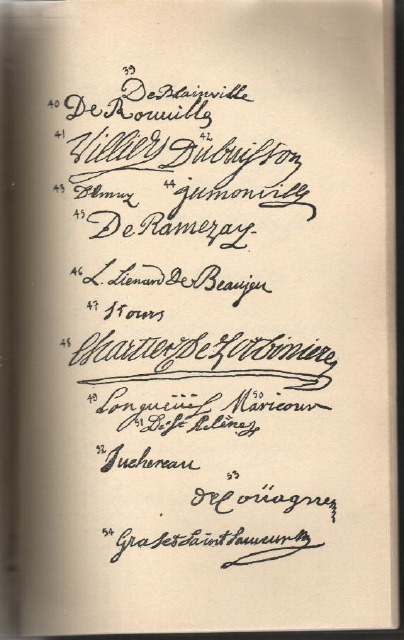 39
DeBlainville
40 De Rouville
41 Villiers 42 Dubuisson
43 Demuy 44 jumonville
45 De Ramezay
46 L. Lienard De Beaujeu
47 St ours
48 Chartier De Lotbiniere
49 Longueüeil 50 Maricour
51 De St Helenes
52 Juchereau
53
de Coüagne
54